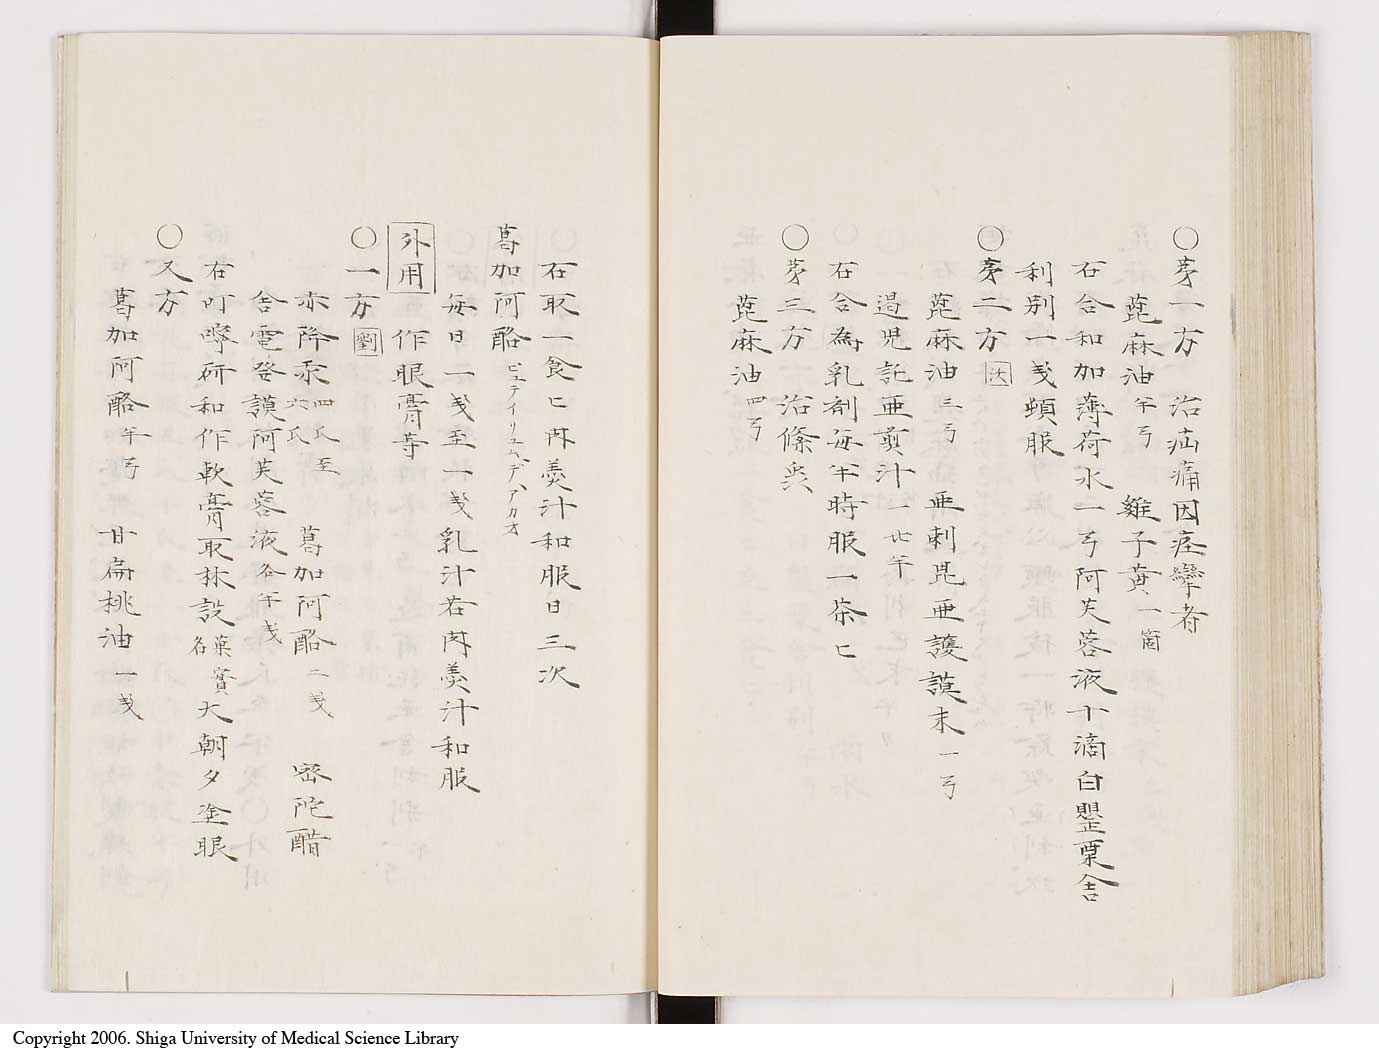 〇茅一方 治疝痛因痙攣者
蓖麻油 午弓 雞子黄 一箇
右合和加薄荷水一弓阿芙蓉液十滴白罌粟舎
利別一戔頓服
〇茅二方
蓖麻油 三弓 亜剌毘亜護謨末 一弓
過児託亜煎汁 一
右合為乳剤毎半時服一茶匕
〇茅三方 治絛虫
蓖麻油 四弓
右取一食匕肉羹汁和服日三次
葛加阿酪 ビュテイリュム、デ、アカオ
毎日一戔至一戔乳汁若肉羹汁和服
外用 作眼膏等
〇一方 劉
赤降汞 四氏至六氏 葛加阿酪 二戔 密陀醋
舎電登謨阿芙蓉液 各午戔
右叮嚀研和作軟膏取林設 菓實名 大朝夕塗眼
〇又方
葛加阿酪 午弓 甘扁桃油 一戔
Copyright 2006. Shiga University of Medical Science Library